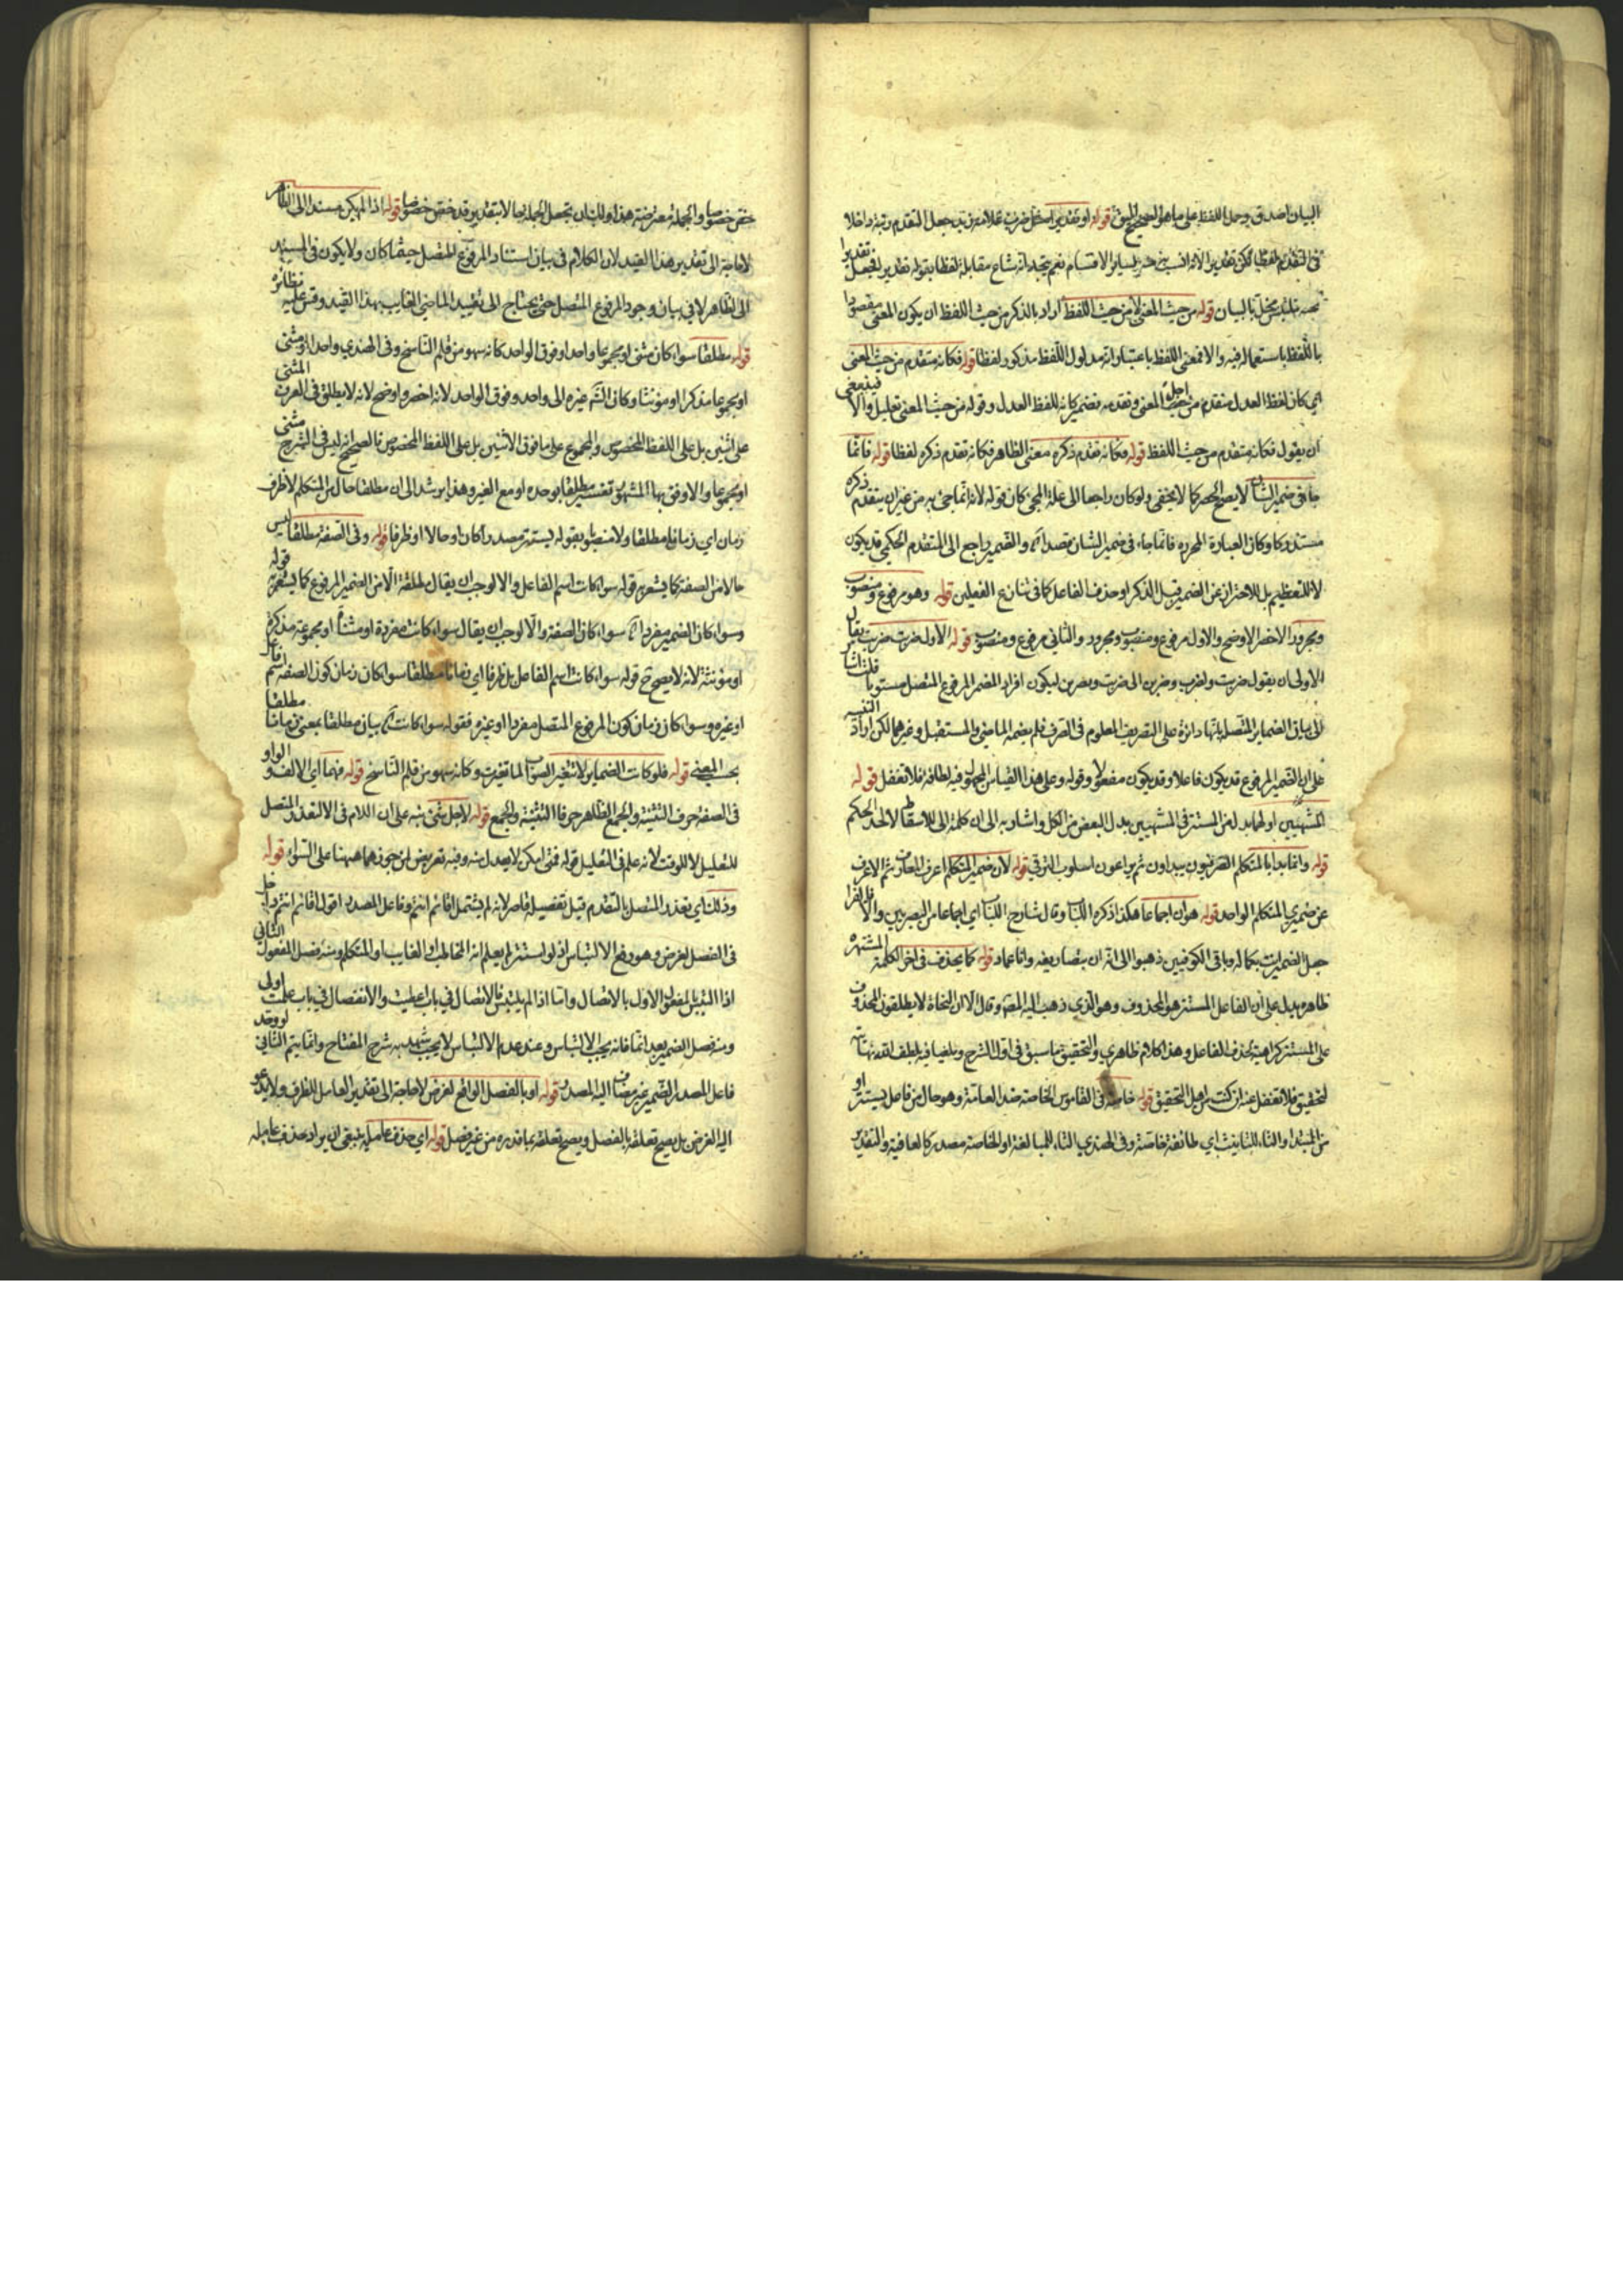 البيان اصدق وحمل اللفظ على ما هو الصحيح اليق قوله او تقديرا مثل ضرب غلامه زيد جعل التقدم رتبة داخلا
في التقدم لفظيا لكن تقديرا لانه انسب من جعله لسائر الاقسام نعم يتجه انه شاع مقابلة لفظا بقوله تقديرا
قوله من حيث المعنى لا من حيث اللفظ اراد بالذكر من حيث اللفظ ان يكون المعنى مقصودا
باللفظ باستعماله فيه والا فمعنى اللفظ باعتبار انه مدلول اللفظ مذكور لفظا قوله فكانه متقدم من حيث المعنى
اي كان لفظ العدل متقدم من حيث المعنى وتقدمه بتضمير كانه للفظ العدل وقوله من حيث المعنى تعليل والا فينبغي
ان يقول فكانه متقدم من حيث اللفظ قوله فكانه تقدم ذكره معنى الظاهر فكانه تقدم ذكره لفظا قوله فانما
جاء في ضمير الشان لا يصح الحصر كما لا يخفى ولو كان راجعا الى علة المجئ كان قوله لانه انما جئ به من غير ان يتقدم ذكره
مستدركا وكان العبارة المحررة فانما جاء في ضمير الشان قصدا والضمير راجع الى المتقدم الحكمي قد يكون
لا للتعظيم بل للاحتراز عن الضمير قبل الذكر او حذف الفاعل كما في تنازع الفعلين قوله وهو مرفوع ومنصوب
ومجرور الاخصر الاوضح والاول مرفوع ومنصوب ومجرور والثاني مرفوع ومنصوب قوله الاول ضربت ضربت يقال
الاولى ان يقول ضربت ولضرب وضربن الى ضربت ويضربن ليكون افراد المضمر المرفوع المتصل مستوفيا
الى باقي الضماير المتصل بانها دائرة على التصريف المعلوم في الصرف فلم يضمه الماضي والمستقبل وغيرهما لكن اراد التنبيه
على ان الضمير المرفوع قد يكون فاعلا وقد يكون مفعولا وقوله وعلى هذا القياس المجهول وفيه لطافة فلا تغفل قوله
المشبهين اولهما بدل من المستتر في المشبهين بدل البعض من الكل واشار به الى ان كلمة الى للاسقاط لا لمد الحكم
قوله وانما بدا بالمتكلم الصرفيون يبداون ثم يراعون اسلوب الترقي قوله لان ضمير المتكلم اعرف المعارف ثم الاعرف
عن ضميري المتكلم الواحد قوله هو ان اجماعا هكذا ذكره اللباب وقال شارح اللباب اي اجماعا من البصريين والا فالفراء
جعل الضمير انت بكماله وباقي الكوفيين ذهبوا الى انه ان بتصاريفه وانا عماد قوله كما يحذف في اخر الكلمة المشتهرة
ظاهره يدل على ان الفاعل المستتر هو المحذوف وهو الذي ذهب اليه المصم وقال الا ان النحاة لا يطلقون المحذوف
على المستتر كراهية لحذف الفاعل وهذا كلام ظاهري والتحقيق ما سبق في اول الشرح
لتحقيق فلا تغفل عنه ان كنت من اهل التحقيق قوله خاصة في القاموس الخاصة ضد العامة وهو حال من فاعل يستتر او
من المبتدا والتاء للتانيث اي طائفة خاصة وفي الهندي التاء للمبالغة او الخاصة مصدر كالعافية والتقدير
خص خصوصا والجملة معترضة هذا ولك ان تجعل الجملة حالا بتقدير قد خص خصوصا قوله اذا لم يكن مسندا الى الظاهر
لا حاجة الى تقدير هذا القيد لان الكلام في بيان استتار المرفوع المتصل حيثما كان ولا يكون في المسند
الى الظاهر لا في بيان وجود المرفوع المتصل حتى يحتاج الى تقييد الماضي الغايب بهذا القيد وقس عليه نظائره
قوله مطلقا سواء كان مثنى او مجموعا واحدا او فوق الواحد كانه سهو من قلم الناسخ وفي الهندي واحدا او مثنى
او مجموعا مذكرا او مؤنثا وكان الشم غيره الى واحد وفوق الواحد لانه اخصر واوضح لانه لا يطلق في العرف المثنى
على اثنين بل على اللفظ المخصوص والمجموع على ما فوق الاثنين بل على اللفظ المخصوص فالصحيح انه ليس في الشرح مثنى
او مجموعا والاوفق بها المشهور تفسير مطلقا بوحده او مع الغير وهذا يرشد الى ان مطلقا حال من المتكلم لا ظرف
زمان اي زمانا مطلقا ولا منصوب بقوله يستتر مصدرا كان او حالا او ظرفا قوله وفي الصفة مطلقا ليس
حالا من الصفة كما يشعر به قوله سواء كانت اسم الفاعل والا لوجب ان يقال مطلقة الا من الضمير المرفوع كما يشعر به قوله
وسواء كان الضمير مفردا سواء كان الصفة والا لوجب ان يقال سواء كانت مفردة او مثناة او مجموعة مذكرة
او مؤنثة لانه لا يصح ح قوله سواء كانت اسم الفاعل بل ظرفا اي زمانا مطلقا سواء كان زمان كون الصفة اسم فاعل
او غيره وسواء كان زمان كون المرفوع المتصل مفردا او غيره فقوله سواء كانت بيان مطلقا بمعنى زمانا مطلقا
بحسب المعنى قوله فلو كانت الضماير لا تتغير الصواب لما تغيرت وكانه سهو من قلم الناسخ قوله فهما اي الالف والواو
في الصفة حرف التثنية والجمع الظاهر حرفا التثنية والجمع قوله لاجل شئ نبه على ان اللام في الا لتعذر المتصل
للتعليل لا للوقت لانه علم في التعليل قوله فمتى امكن لا يعدل عنه وفيه تعريض لمن جوزهما ههنا على السواء قوله
وذلك اي تعذر المتصل بالتقدم قيل تفصيله قاصر لانه لم يشتمل اقائم انتم وفاعل المصدر اقول اقائم انتم داخل
في الفصل لغرض وهو دفع الالتباس اذ لو استتر لم يعلم انه المخاطب او الغايب او المتكلم ومنه فصل المفعول الثاني
اذا التبس بالمفعول الاول بالاتصال واما اذا لم يلتبس فالاتصال في باب اعطيت والانفصال في باب علمت اولى
ومنه فصل الضمير بعد انما فانه يجب الالتباس وعند عدم الالتباس لا يجب شهد به شرح المفتاح وانما يتم الثاني
فاعل المصدر الضمير غير مضاف اليه المصدر قوله او بالفصل الواقع لغرض لا حاجة الى تقدير العامل للظرف ولا يدعو
اليه الغرض بل يصح تعلقه بالفصل ويصح تعلقه بما قدره من غير فصل قوله اي حذف عامله ينبغي ان يراد حذف عامله